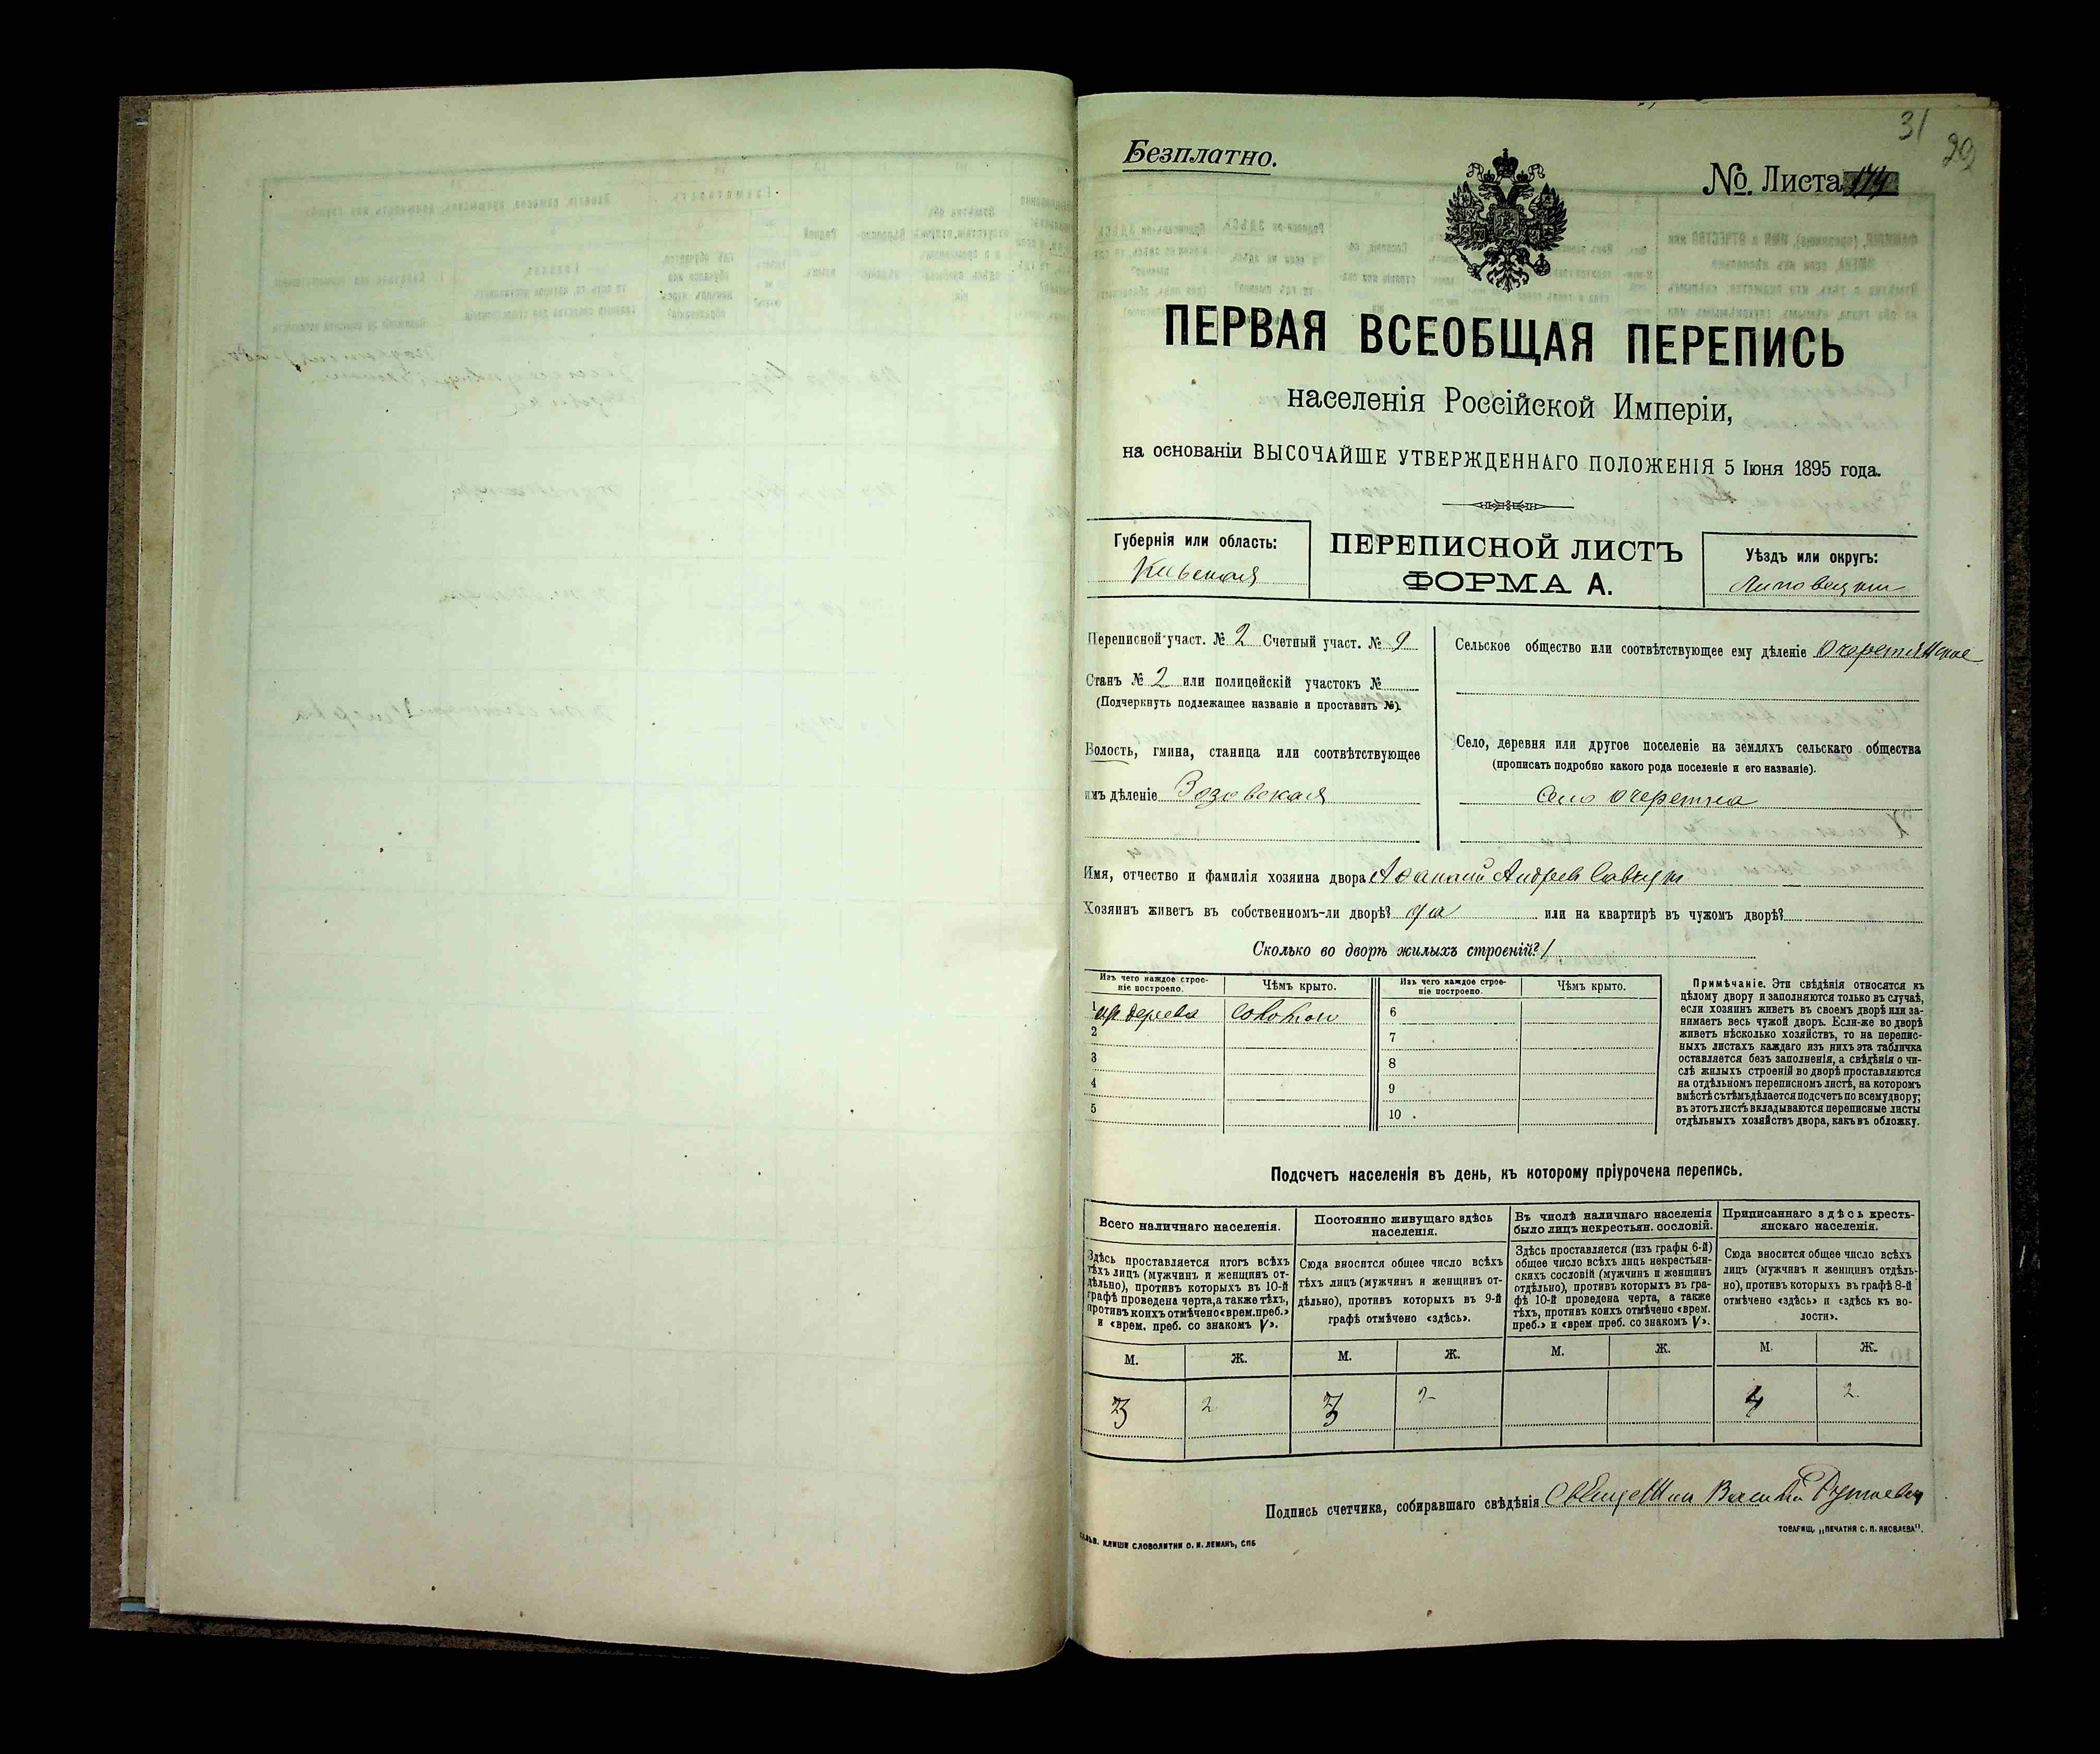 31
29
Безплатно.
№. Листа 174
ПЕРВАЯ ВСЕОБЩАЯ ПЕРЕПИСЬ
населенія Россійской Имперіи,
на основаніи ВЫСОЧАЙШЕ УТВЕРЖДЕННАГО ПОЛОЖЕНІЯ 5 Іюня 1895 года.
Губернія или область:
Кіевская
ПЕРЕПИСНОЙ ЛИСТЪ
ФОРМА А.
Уѣздъ или округъ:
Липовецкій
Переписной участ. № 2 Счетный участ. № 9
Станъ № 2 или полицейскій участокъ №
(Подчеркнуть подлежащее названіе и проставить №).
Волость, гмина, станица или соотвѣтствующее
имъ дѣленіе Зозовская
Сельское общество или соотвѣтствующее ему дѣленіе Очеретянское
Село, деревня или другое поселеніе на земляхъ сельскаго общества
(прописать подробно какого рода поселеніе и его названіе).
Село Очеретна
Имя, отчество и фамилія хозяина двора Андреев Савчук
Хозяинъ живетъ въ собственномъ-ли дворѣ? да или на квартирѣ въ чужомъ дворѣ?
Сколько во дворѣ жилыхъ строеній? 1
Изъ чего каждое строе-
ніе построено.
Чѣмъ крыто.
Изъ чего каждое строе-
ніе построено.
Чѣмъ крыто.
1 из дерева соломою
2
3
4
5
6
7
8
9
10
Примѣчаніе. Эти свѣдѣнія относятся къ
цѣлому двору и заполняются только въ случаѣ,
если хозяинъ живетъ въ своемъ дворѣ или за-
нимаетъ весь чужой дворъ. Если-же во дворѣ
живетъ нѣсколько хозяйствъ, то на перепис-
ныхъ листахъ каждаго изъ нихъ эта табличка
оставляется безъ заполненія, а свѣдѣнія о чи-
слѣ жилыхъ строеній во дворѣ проставляются
на отдѣльномъ переписномъ листѣ, на которомъ
вмѣстѣ съ тѣмъ дѣлается подсчетъ по всему двору;
въ этотъ листъ вкладываются переписные листы
отдѣльныхъ хозяйствъ двора, какъ въ обложку.
Подсчетъ населенія въ день, къ которому пріурочена перепись.
Всего наличнаго населенія.
Здѣсь проставляется итогъ всѣхъ
тѣхъ лицъ (мужчинъ и женщинъ от-
дѣльно), противъ которыхъ въ 10-й
графѣ проведена черта, а также тѣхъ,
противъ коихъ отмѣчено «врем. преб.»
и «врем. преб. со знакомъ V».
Постоянно живущаго здѣсь
населенія.
Сюда вносится общее число всѣхъ
тѣхъ лицъ (мужчинъ и женщинъ от-
дѣльно), противъ которыхъ въ 9-й
графѣ отмѣчено «здѣсь».
Въ числѣ наличнаго населенія
было лицъ некрестьян. сословій.
Здѣсь проставляется (изъ графы 6-й)
общее число всѣхъ лицъ некрестьян-
скихъ сословій (мужчинъ и женщинъ
отдѣльно), противъ которыхъ въ гра-
фѣ 10-й проведена черта, а также
тѣхъ, противъ коихъ отмѣчено «врем.
преб.» и «врем преб. со знакомъ V».
Приписаннаго здѣсь кресть-
янскаго населенія.
Сюда вносится общее число всѣхъ
лицъ (мужчинъ и женщинъ отдѣль-
но), противъ которыхъ въ графѣ 8-й
отмѣчено «здѣсь» и «здѣсь къ во-
лости».
М. Ж. М. Ж. М. Ж. М. Ж.
3 2 3 2 4 2
Подпись счетчика, собиравшаго свѣдѣнія Священник
КЛИШЕ СЛОВОЛИТНИ О. И. ЛЕМАНЪ, СПБ
ТОВАРИЩ. „ПЕЧАТНЯ С. П. ЯКОВЛЕВА".